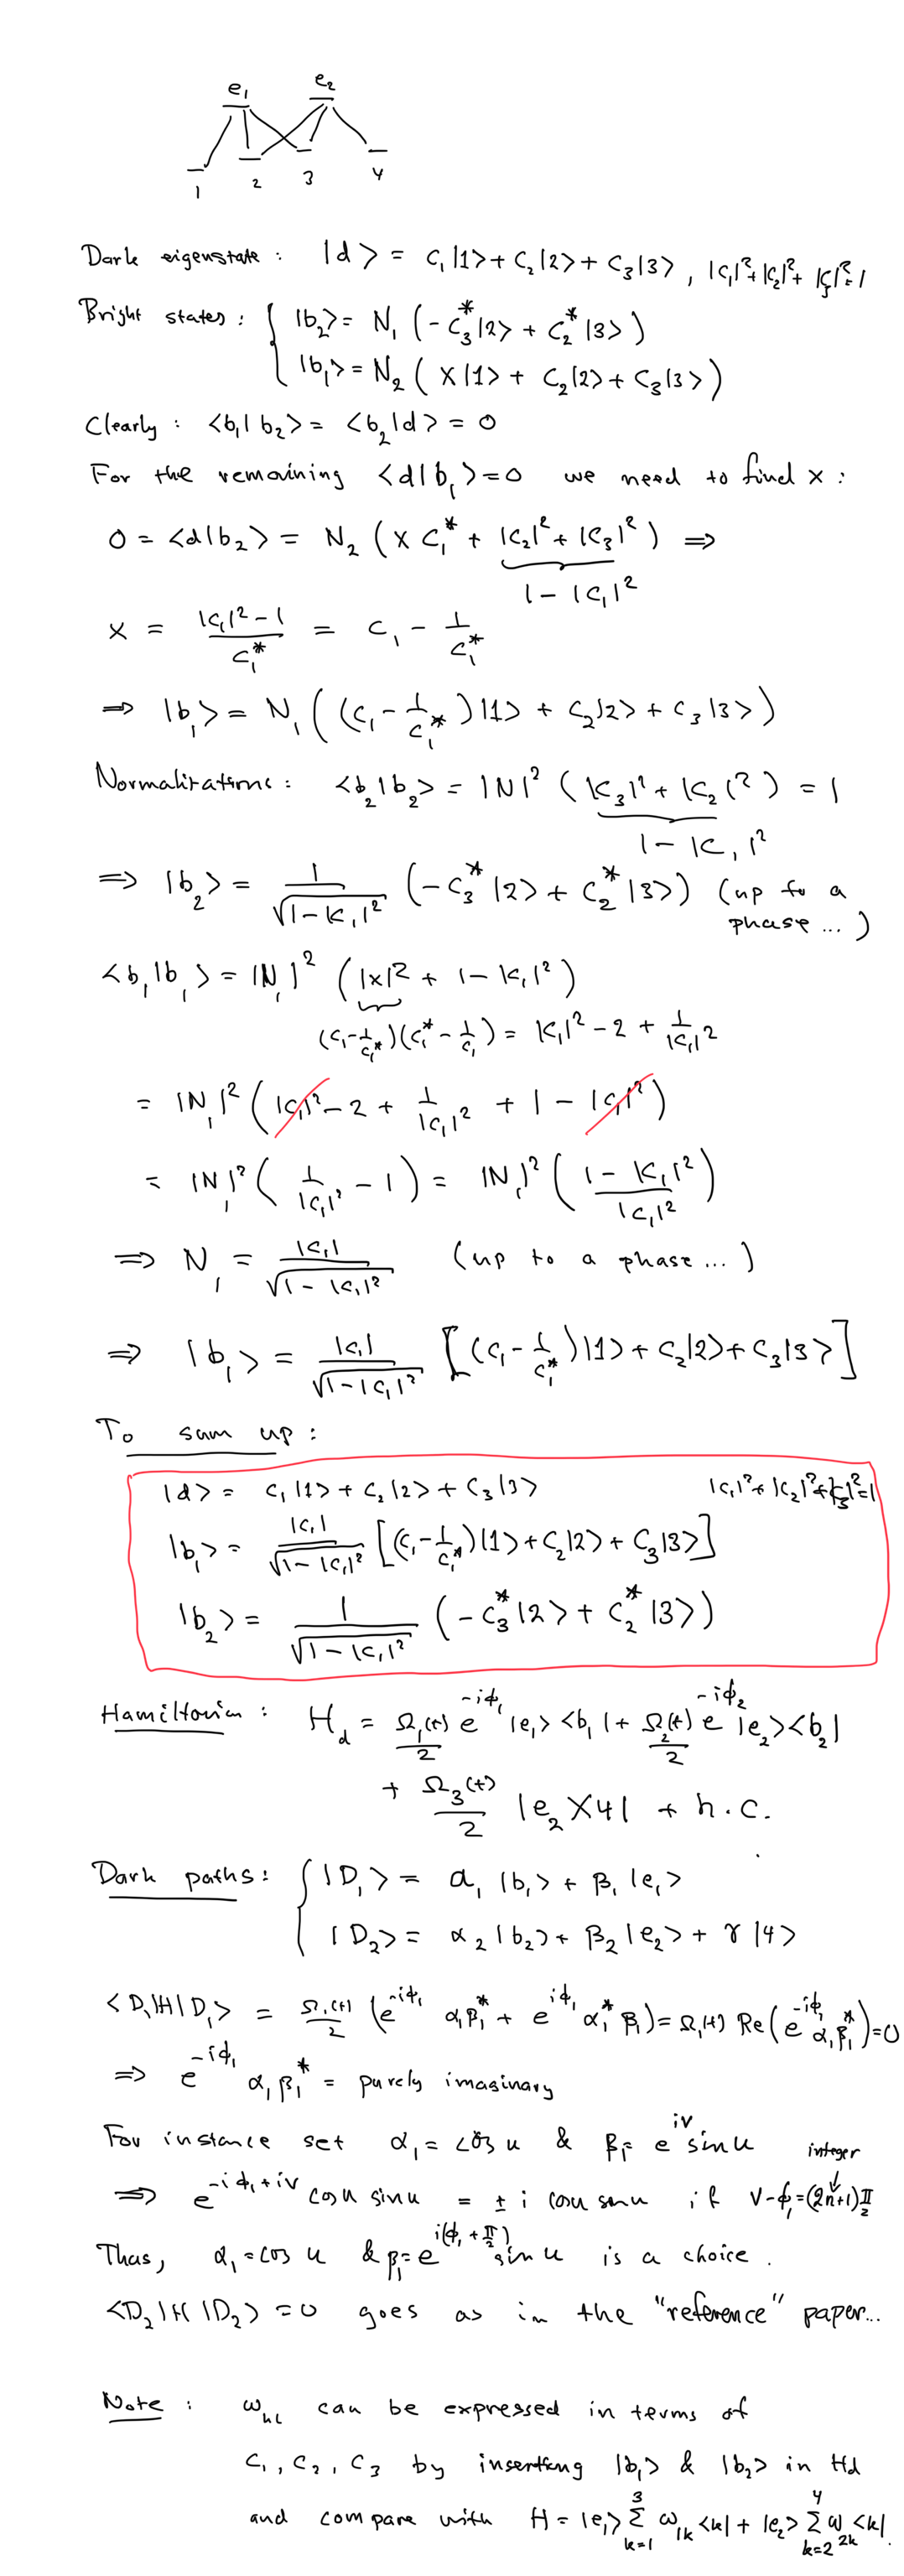 e₁ e₂
1 2 3 4
Dark eigenstate : |d> = c₁|1> + c₂|2> + c₃|3> , |c₁|² + |c₂|² + |c₃|² = 1
Bright states : { |b₂> = N₁ ( -c₃*|2> + c₂*|3> )
|b₁> = N₂ ( x|1> + c₂|2> + c₃|3> )
Clearly : <b₁|b₂> = <b₂|d> = 0
For the remaining <d|b₁> = 0 we need to find x :
0 = <d|b₂> = N₂ ( x c₁* + |c₂|² + |c₃|² ) ⇒
1 - |c₁|²
x = (|c₁|² - 1)/c₁* = c₁ - 1/c₁*
⇒ |b₁> = N₁ ( (c₁ - 1/c₁*)|1> + c₂|2> + c₃|3> )
Normalizations : <b₂|b₂> = |N|² ( |c₃|² + |c₂|² ) = 1
1 - |c₁|²
⇒ |b₂> = 1/√(1-|c₁|²) ( -c₃*|2> + c₂*|3> ) (up to a
phase ... )
<b₁|b₁> = |N₁|² ( |x|² + 1 - |c₁|² )
(c₁ - 1/c₁*)(c₁* - 1/c₁) = |c₁|² - 2 + 1/|c₁|²
= |N₁|² ( |c₁|² - 2 + 1/|c₁|² + 1 - |c₁|² )
= |N₁|² ( 1/|c₁|² - 1 ) = |N₁|² ( (1 - |c₁|²)/|c₁|² )
⇒ N₁ = |c₁|/√(1 - |c₁|²) (up to a phase ... )
⇒ |b₁> = |c₁|/√(1-|c₁|²) [ (c₁ - 1/c₁*)|1> + c₂|2> + c₃|3> ]
To sum up :
|d> = c₁|1> + c₂|2> + c₃|3> |c₁|² + |c₂|² + |c₃|² = 1
|b₁> = |c₁|/√(1-|c₁|²) [ (c₁ - 1/c₁*)|1> + c₂|2> + c₃|3> ]
|b₂> = 1/√(1-|c₁|²) ( -c₃*|2> + c₂*|3> )
Hamiltonian : H_d = Ω₁(t)/2 e^{-iϕ₁} |e₁><b₁| + Ω₂(t)/2 e^{-iϕ₂} |e₂><b₂|
+ Ω₃(t)/2 |e₂><4| + h.c.
Dark paths : { |D₁> = α₁|b₁> + β₁|e₁>
|D₂> = α₂|b₂> + β₂|e₂> + γ|4>
<D₁|H|D₁> = Ω₁(t)/2 ( e^{-iϕ₁} α₁β₁* + e^{iϕ₁} α₁*β₁ ) = Ω₁(t) Re( e^{-iϕ₁} α₁β₁* ) = 0
⇒ e^{-iϕ₁} α₁β₁* = purely imaginary
For instance set α₁ = cos u & β₁ = e^{iv} sin u integer
⇒ e^{-iϕ₁+iv} cos u sin u = ± i cos u sin u if v - ϕ₁ = (2n+1)π/2
Thus, α₁ = cos u & β₁ = e^{i(ϕ₁ + π/2)} sin u is a choice .
<D₂|H|D₂> = 0 goes as in the "reference" paper...
Note : ω_{kl} can be expressed in terms of
c₁, c₂, c₃ by inserting |b₁> & |b₂> in H_d
and compare with H = |e₁> Σ_{k=1}^{3} ω_{1k} <k| + |e₂> Σ_{k=2}^{4} ω_{2k} <k| .